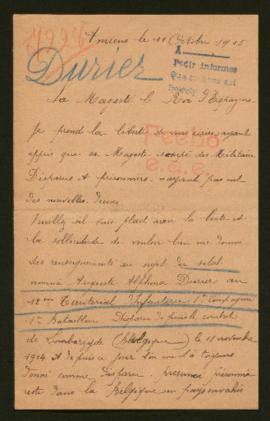 Amiens le 11 Octobre 1915
Durier
A
Pedir informes
Sa Majesté le Roi d'Espagne
Je prend la liberté de vous écrire ayant
appris que sa Majesté des Militaires
Disparus et prisonniers n'ayant pas
des nouvelles d'eux
Veuillez s'il vous plait avoir la bonté et
la sollicitude de vouloir bien me donner
des renseignements au sujet du soldat
nommé Auguste Durier au
12me Territorial d'Infanterie 1re Compagnie
1er Bataillon Disparu depuis le combat
de Lombartzyde (Belgique) le 11 novembre
1914 et depuis ce jour l'on me l'a toujours
donné comme Disparu
resté dans la Belgique ou pays envahis